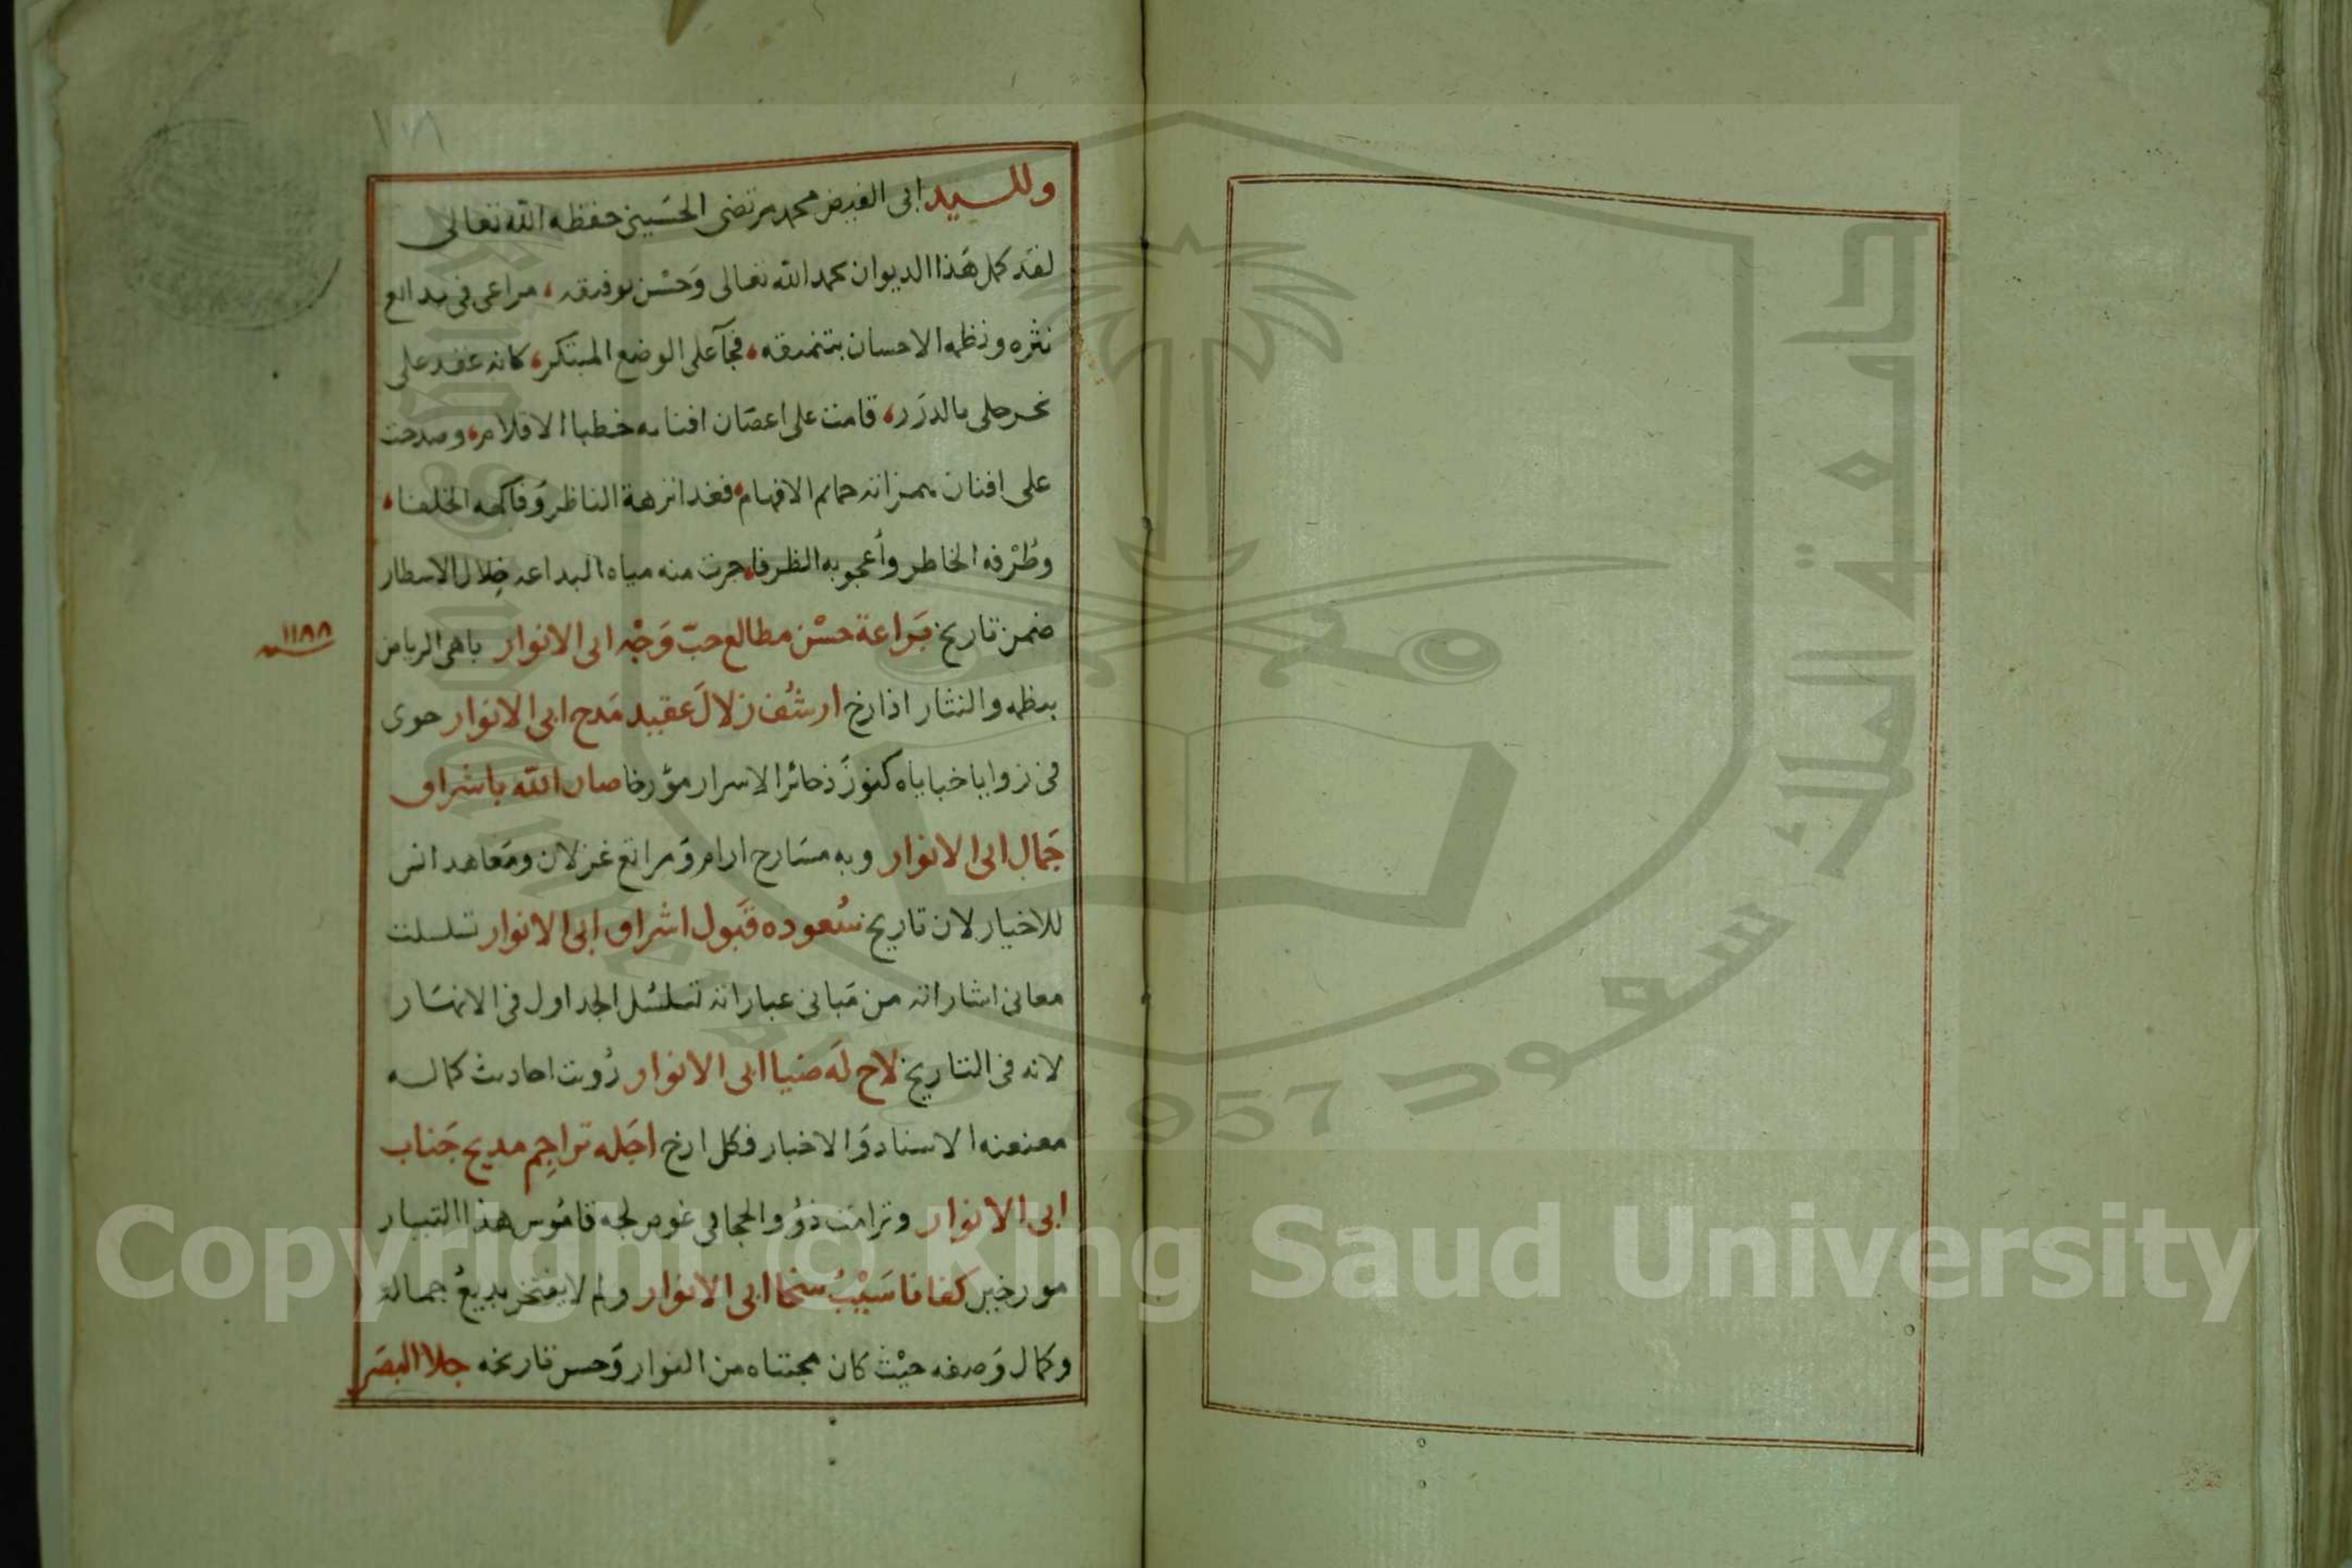 ١٧٨
وللسيد ابى الفيض محمد مرتضى الحسينى حفظه الله تعالى
لقد كمل هَذا الديوان بحمد الله تعالى وَحسْن توفيقه، مراعى فى بدائع
نثره ونظمه الاحسان بتنميقه، فجآ على الوضع المبتكر، كانه عقد على
نحر حلى بالدرَر، قامت على اغصان افنانه خطبا الاقلام، وصدحت
على افنان حمايم الافهام، فغدا نزهة الناظر وَفاكهه الخلفا،
وطُرْفه الخاطر وأعجوبه الظرفا، جرت منه مياه البداعه خِلال الاسطار
ضمن تاريخ بَراعة حسْن مطالع حبّ وَجْه ابى الانوار باهى الرياض
١١٨٨ سنه
بنظمه والنثار اذا ارخ ارشُف زلالَ عقيد مَدح ابى الانوار حوى
فى زوايا خباياه كنوزَ ذخائر الاسرار مؤرخا صان الله باشراق
جَمال ابى الانوار وبه مسَارح ارام وَمراتع غزلان ومَعاهد انس
للاخيار لان تاريخ سُعوده قَبول اشراق ابى الانوار تسلسلت
معانى اشاراته من مَبانى عباراته تسلسُل الجداول فى الانهَار
لانه فى التاريخ لاح لَه ضيا ابى الانوار رُويت احاديث كماله
معنعنه الاسناد وَالاخبار فكل ارخ اجَله تراجِم مديح جَناب
ابى الانوار وترامَت ذوُو الحجا فى غوص لجه قامُوس هذا التيار
مورخين كفانا سَيْبُ سخا ابى الانوار ولم لا يفتخر بديعُ جماله
وكمال وَصفه حيْث كان مجتناه من النوار وَحسن تاريخه جلا البصَر
جامعة الملك سعود
1957
King Saud University
Copyright © King Saud University